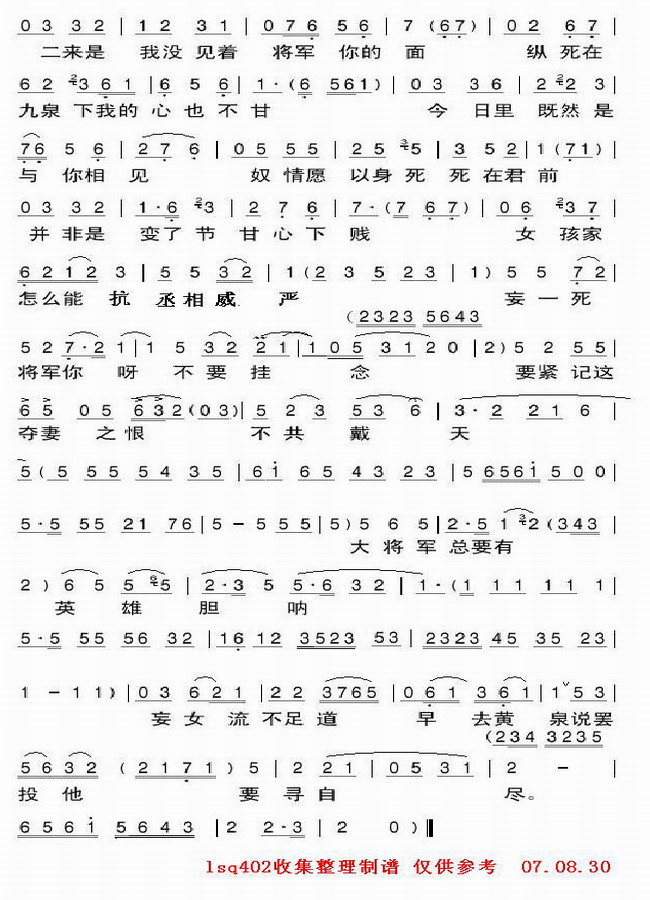 0 3 3 2 | 1 2 3 1 | 0 7 6 5 6 | 7 (6 7) | 0 2 6 7 |
二来是 我没见着 将军 你的 面 纵死在
6 2 2 3 6 1 | 6 5 6 | 1 · ( 6 5 6 1 ) | 0 3 3 6 | 0 2 2 2 3 |
九泉 下我的 心也不甘 今 日里 既然是
7 6 5 6 | 2 7 6 | 0 5 5 5 | 2 5 3 5 | 3 5 2 | 1 ( 7 1 ) |
与 你相 见 奴 情愿 以身 死 死 在君 前
0 3 3 2 | 1 · 6 2 3 | 2 7 6 | 7 · ( 7 6 7 ) | 0 6 2 3 7 |
并 非是 变了 节 甘 心 下 贱 女 孩家
6 2 1 2 3 | 5 5 3 2 | 1 ( 2 3 5 2 3 | 1 ) 5 5 7 2 |
怎么能 抗 丞相威 严 妄 一 死
( 2 3 2 3 5 6 4 3
5 2 7 · 2 1 | 1 5 3 2 2 1 | 1 0 5 3 1 2 0 | 2 ) 5 2 5 5 |
将军你 呀 不 要 挂 念 要紧 记这
6 5 0 5 6 3 2 ( 0 3 ) | 5 2 3 5 3 6 | 3 · 2 2 2 1 6 |
夺妻 之 恨 不 共 戴 天
5 ( 5 5 5 5 4 3 5 | 6 1 6 5 4 3 2 3 | 5 6 5 6 1 5 0 0 |
5 · 5 5 5 2 1 7 6 | 5 – 5 5 5 | 5 ) 5 6 5 | 2 · 5 1 3 2 ( 3 4 3 |
大 将 军 总要有
2 ) 6 5 5 6 5 | 2 · 3 5 5 · 6 3 2 | 1 · ( 1 1 1 1 1 |
英 雄 胆 呐
5 · 5 5 5 5 6 3 2 | 1 6 1 2 3 5 2 3 5 3 | 2 3 2 3 4 5 3 5 2 3 |
1 – 1 1 ) | 0 3 6 2 1 | 2 2 3 7 6 5 | 0 6 1 3 6 1 | 1 5 3 |
妄女 流 不足 道 早 去黄 泉说罢
( 2 3 4 3 2 3 5
5 6 3 2 ( 2 1 7 1 ) 5 | 2 2 1 | 0 5 3 1 | 2 – |
投 他 要 寻 自 尽。
6 5 6 1 5 6 4 3 | 2 2 · 3 | 2 0 ) ‖
lsq402收集整理制谱 仅供参考 07.08.30